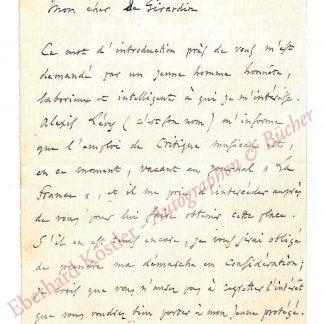 Mon cher de Girardin
Ce mot d'introduction près de vous m'est
demandé par un jeune homme honnête,
laborieux et intelligent à qui je m'intéresse.
Alexis Lévy (c'est son nom) m'informe
que l'emploi de Critique musical est,
en ce moment, vacant au journal "La
France", et il me prie d'intercéder auprès
de vous pour lui faire obtenir cette place.
S'il en est temps encore, je vous serai obligé
de prendre ma démarche en considération;
je crois que vous n'aurez pas à regretter l'intérêt
que vous voudrez bien porter à mon jeune protégé.
Eberhard Köstler - Autographen & Bücher